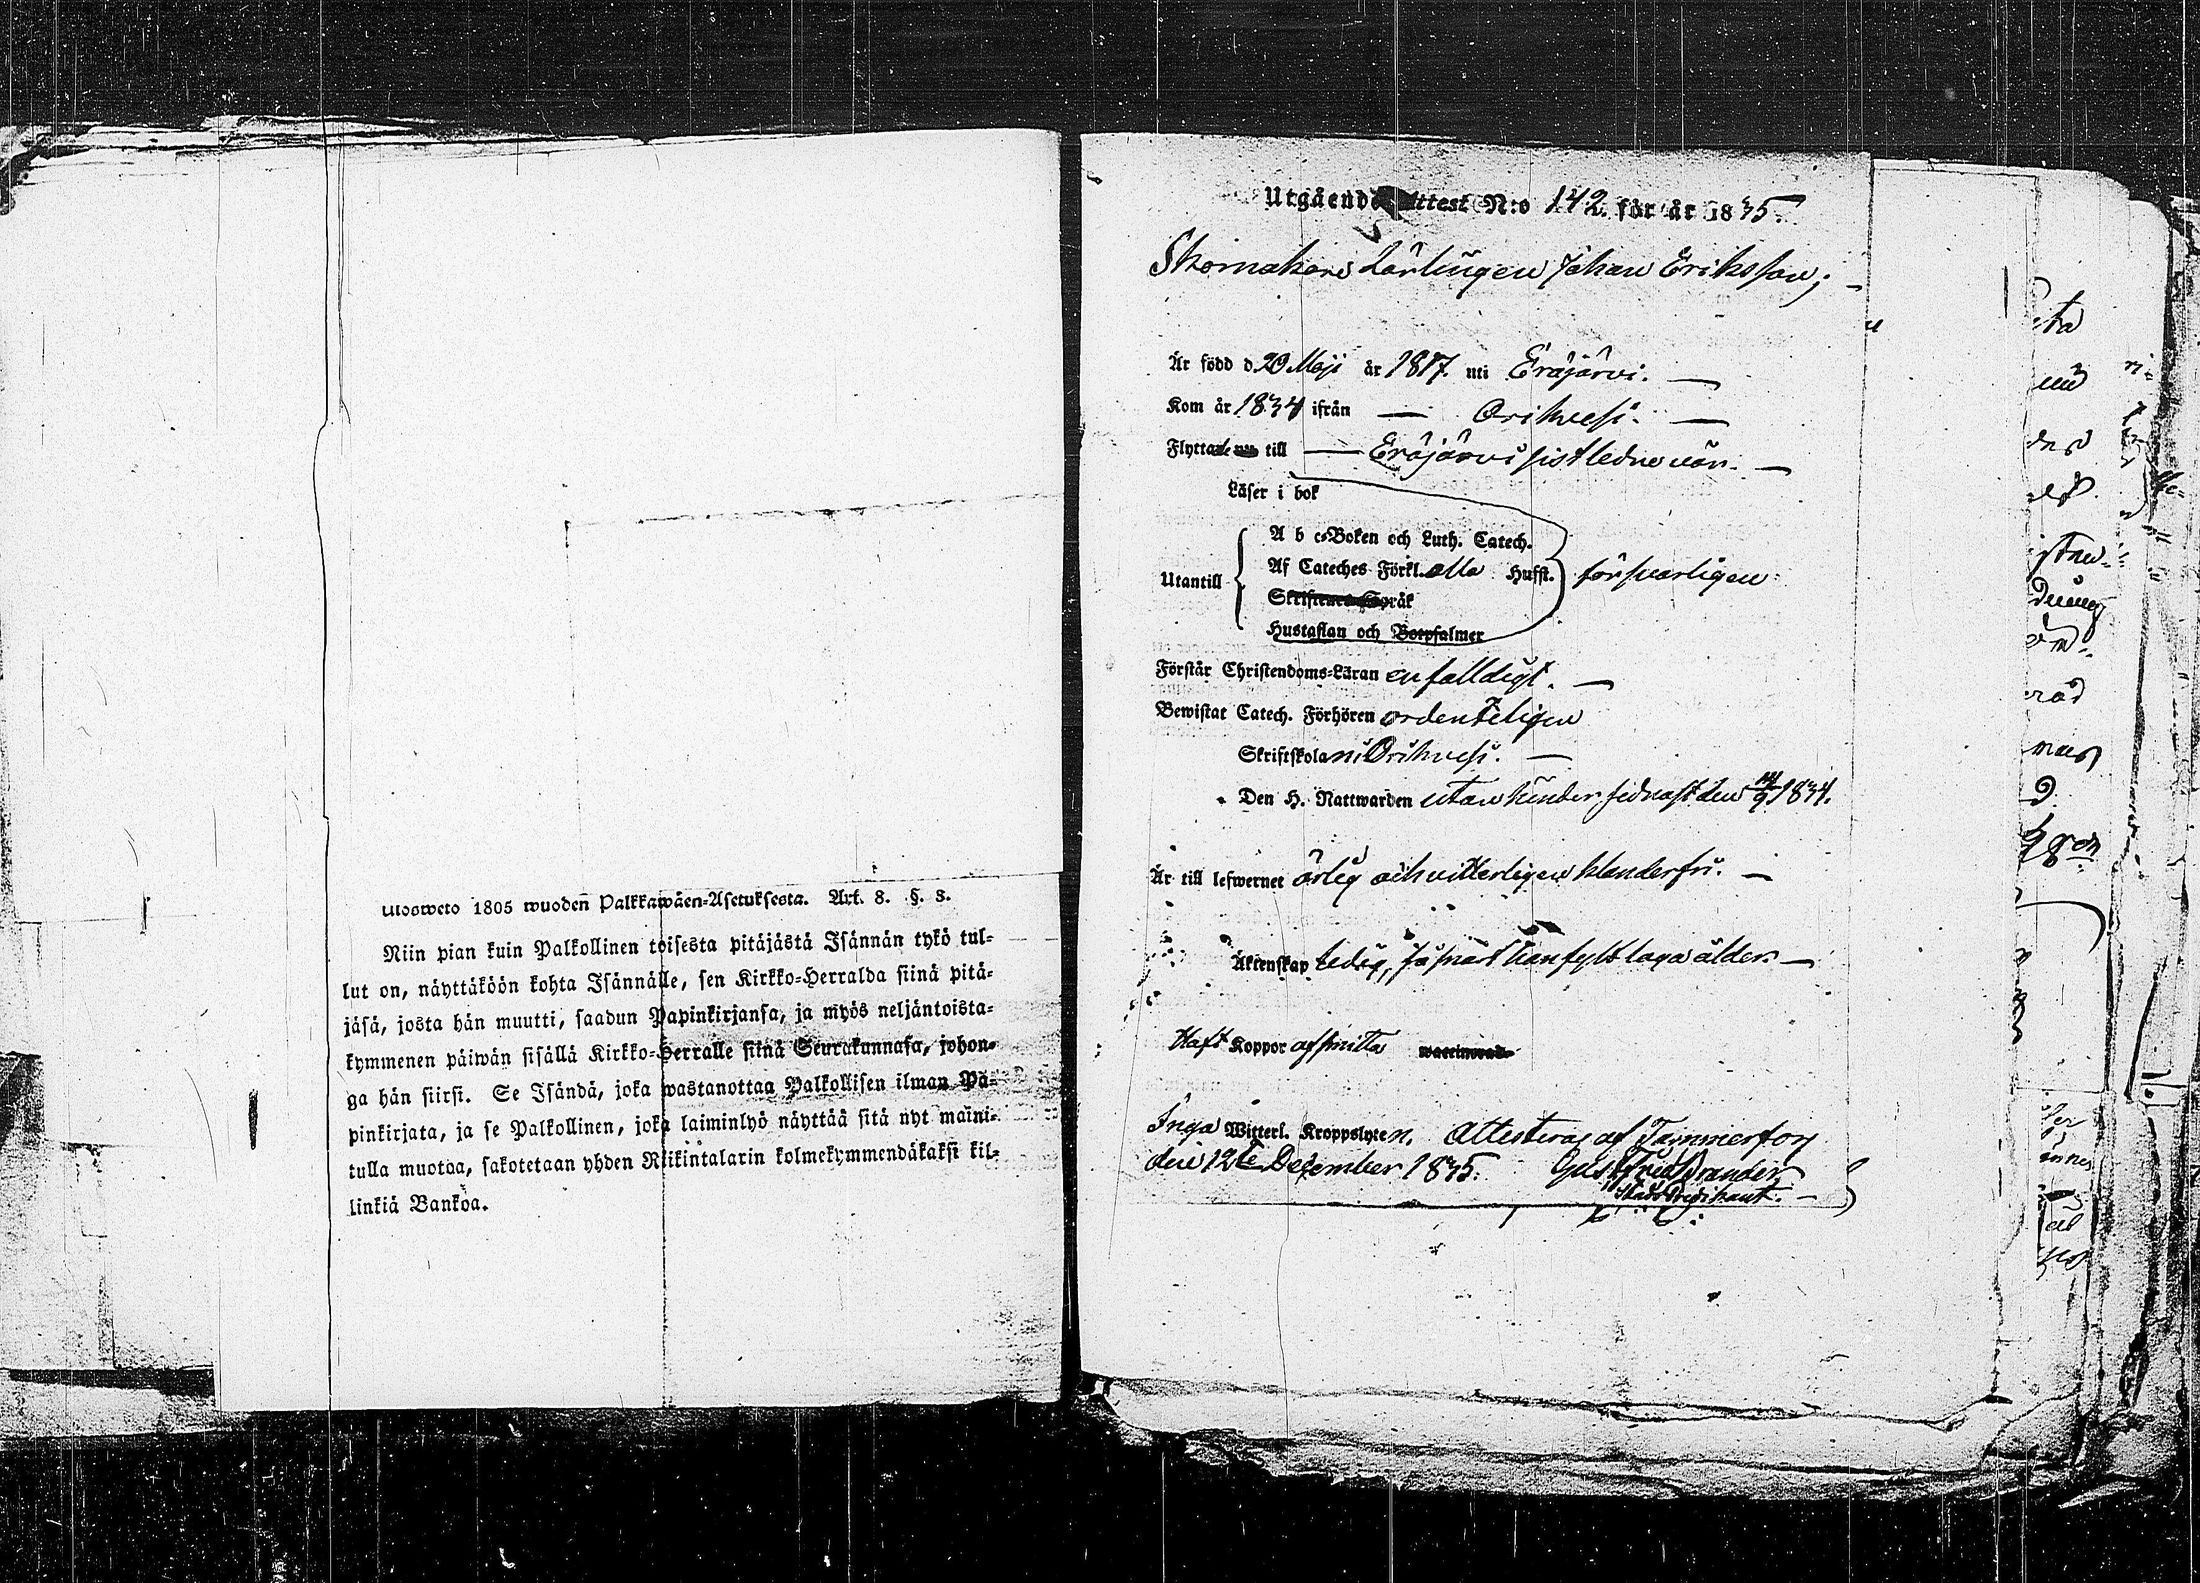 Ulosweto 1805 wuoden Palkkawäen-Asetuksesta. Art. 8. §. 3.
Niin pian kuin Palkollinen toisesta pitäjästä Isännän tykö tul-
lut on, näyttäköön kohta Isännälle, sen Kirkko-Herralda siinä pitä-
jäsä, josta hän muutti, saadun Papinkirjansa, ja myös neljäntoista-
kymmenen päiwän sisällä Kirkko-Herralle siinä Seurakunnasa, johon-
ga hän siirsi. Se Isändä, joka wastanottaa Palkollisen ilman Pa-
pinkirjata, ja se Palkollinen, joka laiminlyö näyttää sitä nyt maini-
tulla muotoa, sakotetaan yhden Riikintalarin kolmekymmendäkaksi kil-
linkiä Bankoa.
Utgående Attest N:o 142 för år 1835.
Skomakare Lärlingen Johan Eriksson;
Är född d. 20 Maji år 1817. uti Eräjärvi.
Kom år 1834 ifrån Orihvesi.
Flyttade nu till Eräjärvi sistledne vår.
Läser i bok
A b c-Boken och Luth. Catech.
Utantill Af Cateches Förkl. alla Hufst. försvarligen
Skriftenes Språk
Hustaflan och Botpsalmer
Förstår Christendoms-Läran enfalldigt.
Bewistat Catech. Förhören ordenteligen
Skriftskolan i Orihvesi.
Den H. Nattwarden utan hinder sednast den 14/9 1834.
Är till lefwernet ärlig och vitterligen klanderfri.
Äktenskap ledig, så snart han fyllt laga ålder.
Haft Koppor af smitta
Inga Witterl. Kroppslyten. Attesteras af Tammerfors
den 12te December 1835. Gust. Fred. Brander
Stads Predikant.